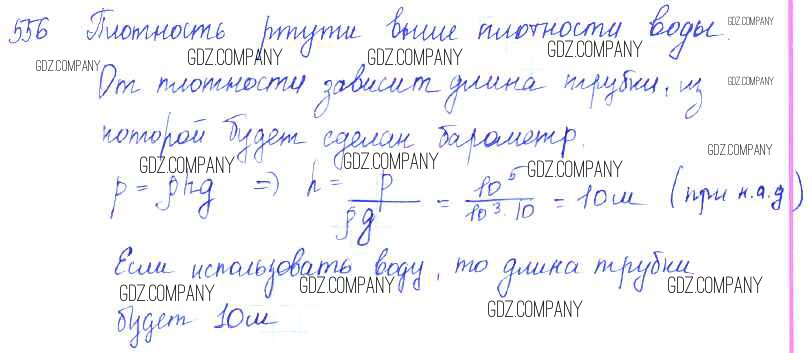 556 Плотность ртути выше плотности воды.
GDZ.COMPANY
GDZ.COMPANY GDZ.COMPANY GDZ.COMPANY GDZ.COMPANY
От плотности зависит длина трубки, из
GDZ.COMPANY
которой будет сделан барометр.
GDZ.COMPANY GDZ.COMPANY GDZ.COMPANY GDZ.COMPANY
p = ρhg => h = p/ρg = 10⁵/10³·10 = 10м (при н.а.д)
Если использовать воду, то длина трубки
GDZ.COMPANY GDZ.COMPANY GDZ.COMPANY GDZ.COMPANY
будет 10м